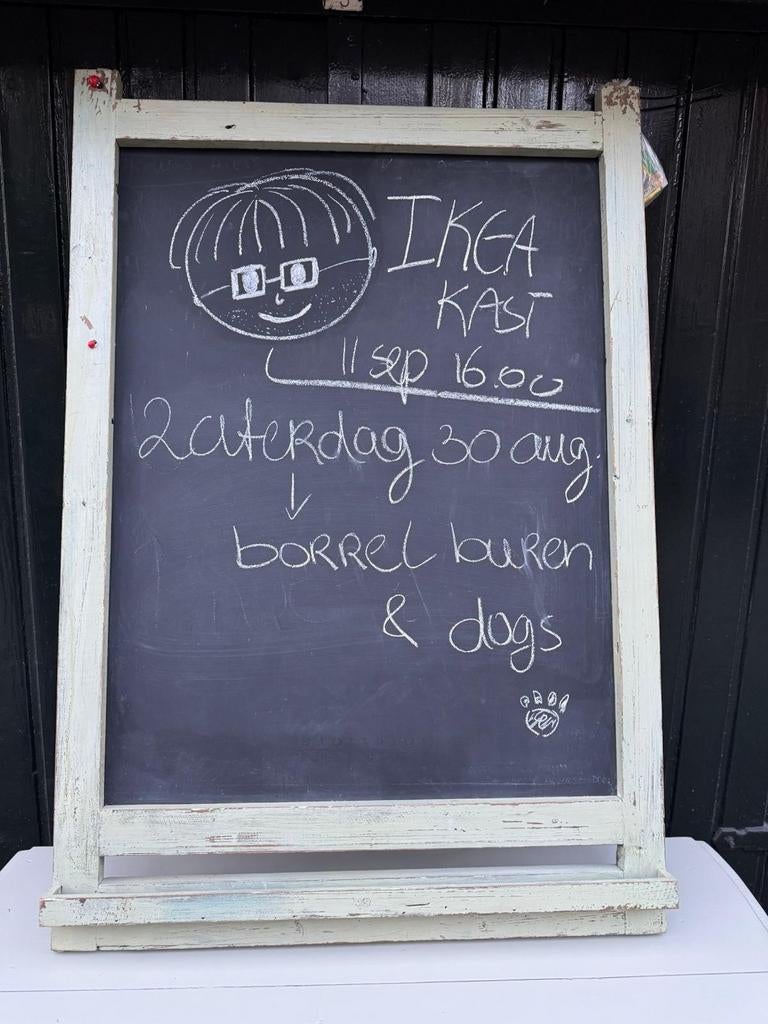 IKEA
KAST
11 sep 16.00
Zaterdag 30 aug.
borrel buren
& dogs